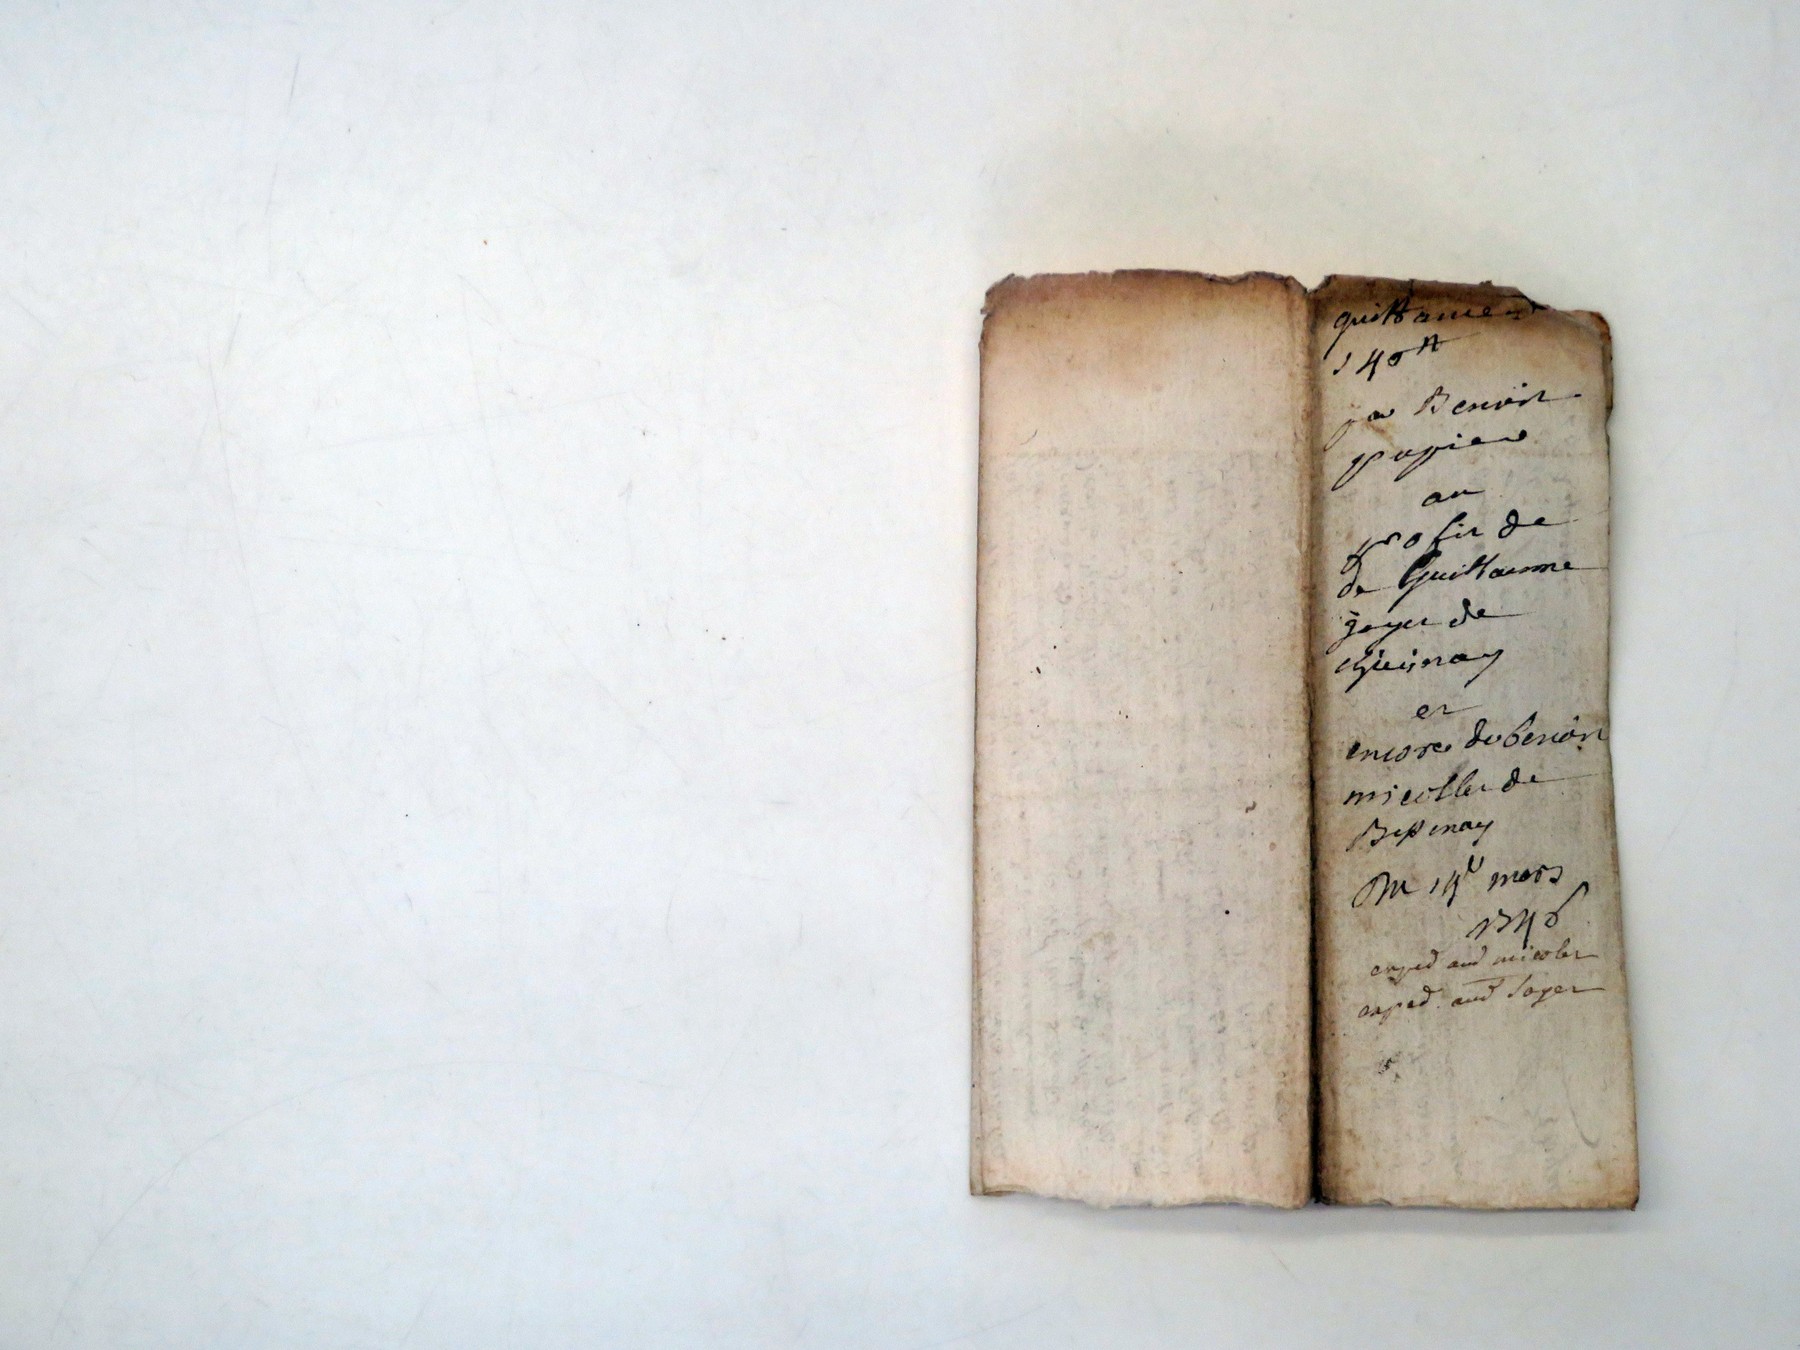 quittance
140 tt
pa Benoit
papier
au
profit de
de Guillaume
joyer de
et
encore du benoit
micollet de
Bessenay
Du 14e mars
1746
exped aud micolet
exped. aud Joyer